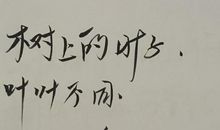 木对上的叶子.
叶叶不同.